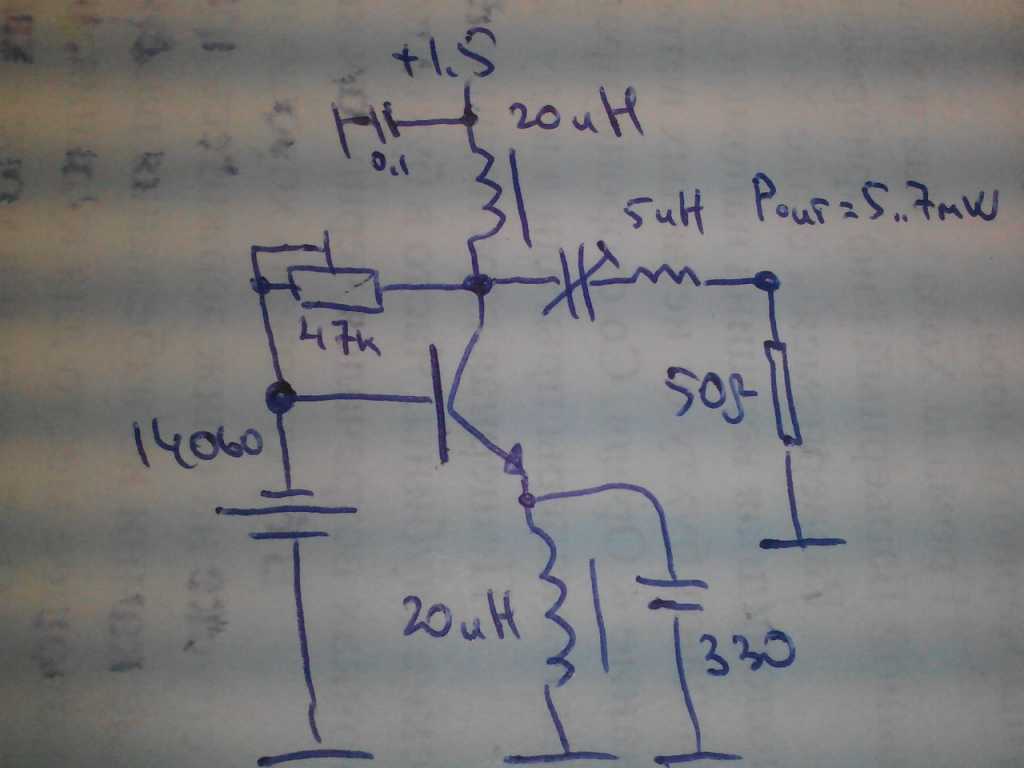 +1.5
20uH
0,1
5uH Pout = 5..7mW
47k
14060
50
20uH
330